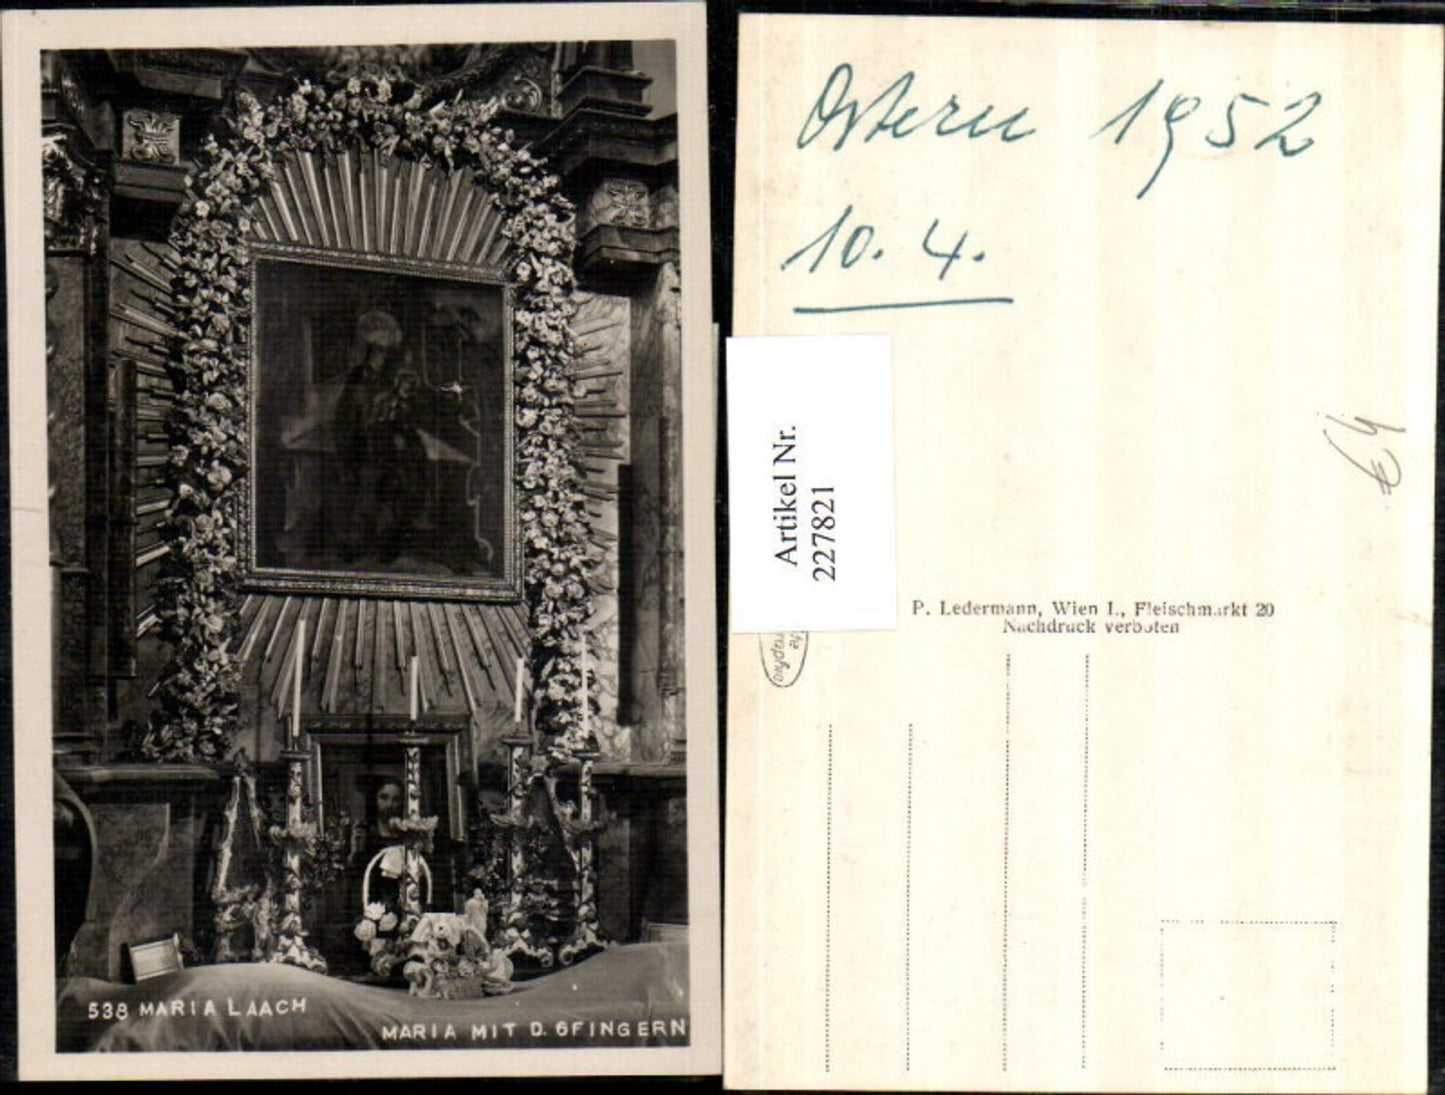 538 MARIA LAACH
MARIA MIT D. 6FINGERN
Ostern 1952
10. 4.
Artikel Nr.
227821
€ 4
P. Ledermann, Wien I., Fleischmarkt 20
Nachdruck verboten